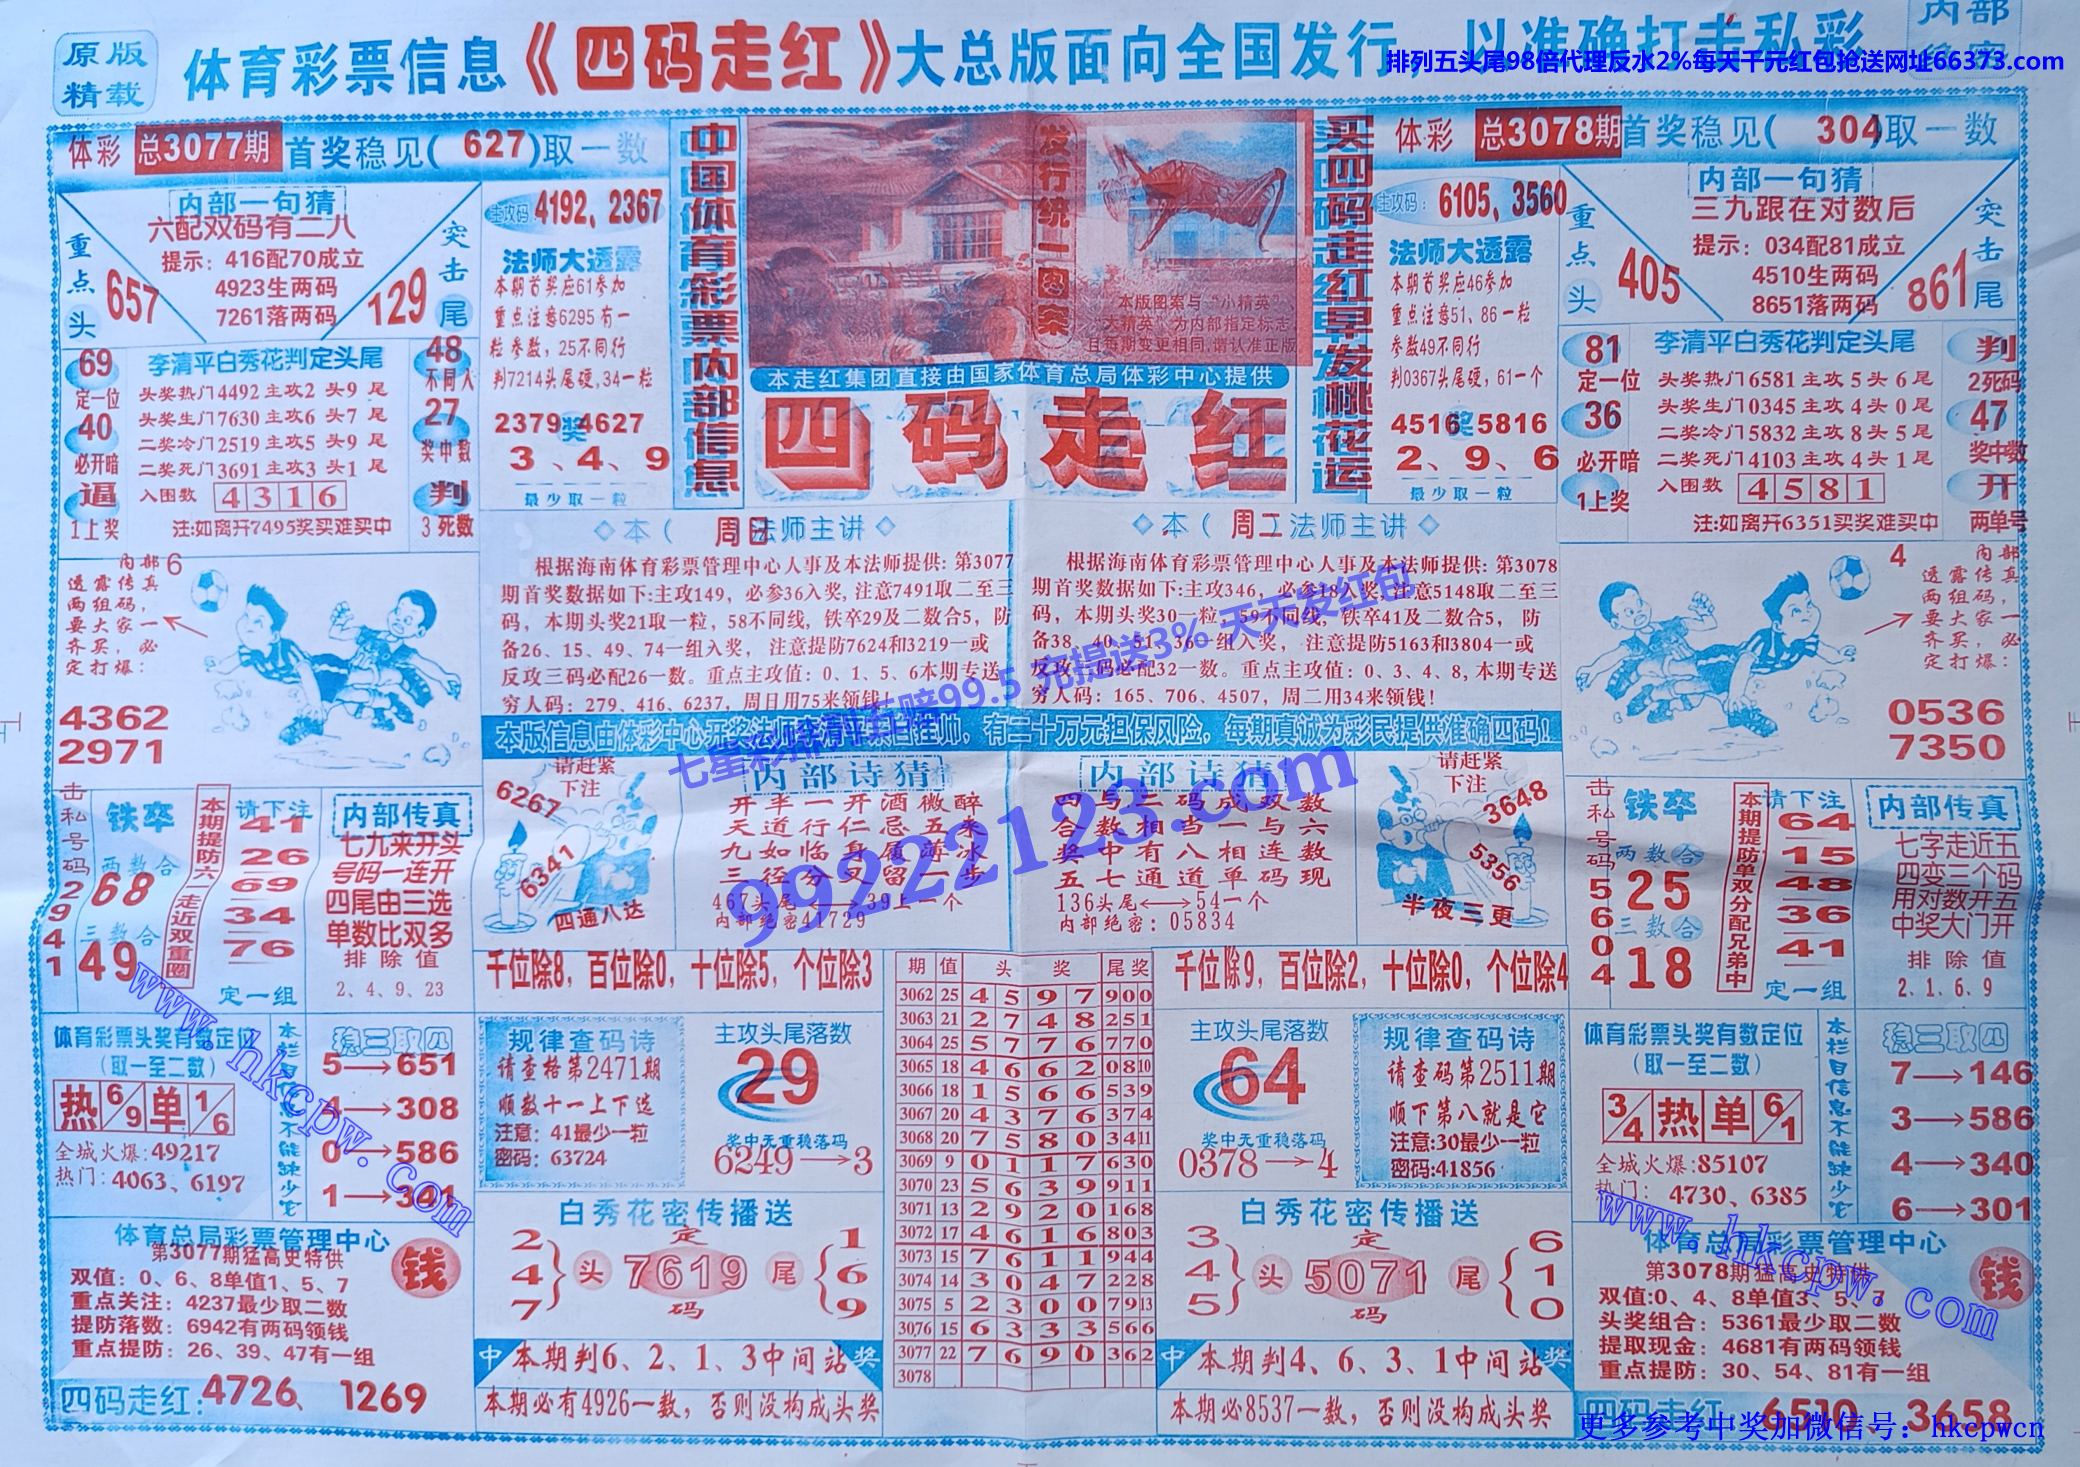 原版
精载
体育彩票信息《四码走红》大总版面向全国发行，以准确打击私彩
内部
排列五头尾98倍代理反水2%每天千元红包抢送网址66373.com
体彩 总3077期 首奖稳见( 627 )取一数
内部一句猜
六配双码有二八
提示：416配70成立
4923生两码
7261落两码
重点头
657
突击尾
129
主攻码 4192, 2367
法师大透露
本期首奖应61参加
重点注意6295有一
粒参数，25不同行
判7214头尾硬,34一粒
2379奖4627
3、4、9
最少取一粒
69
定一位
40
必开暗
逼
1上奖
李清平白秀花判定头尾
头奖热门4492主攻2头9尾
头奖生门7630主攻6头7尾
二奖冷门2519主攻5头9尾
二奖死门3691主攻3头1尾
入围数 4316
注:如离开7495奖买难买中
48
不同入
27
奖中数
判
3死数
中国体育彩票内部信息
发行统一图案
本版图案与“小精英”
大精英”为内部指定标志,
且每期变更相同,请认准正版
本走红集团直接由国家体育总局体彩中心提供
四码走红
买四码走红早发桃花运
体彩 总3078期 首奖稳见( 304 )取一数
主攻码: 6105, 3560
法师大透露
本期首奖应46参加
重点注意51、86一粒
参数49不同行
判0367头尾硬,61一个
4516奖5816
2、9、6
最少取一粒
内部一句猜
三九跟在对数后
提示：034配81成立
4510生两码
8651落两码
重点头
405
突击尾
861
81
定一位
36
必开暗
1上奖
李清平白秀花判定头尾
头奖热门6581主攻5头6尾
头奖生门0345主攻4头0尾
二奖冷门5832主攻8头5尾
二奖死门4103主攻4头1尾
入围数 4581
注:如离开6351买奖难买中
判
2死码
47
奖中数
开
两单号
内部6
透露传真
两组码，
要大家一
齐买，必
定打爆：
4362
2971
◇本（ 周日 法师主讲◇
根据海南体育彩票管理中心人事及本法师提供: 第3077
期首奖数据如下:主攻149，必参36入奖, 注意7491取二至三
码，本期头奖21取一粒，58不同线，铁卒29及二数合5，防
备26、15、49、74一组入奖， 注意提防7624和3219一或
反攻三码必配26一数。重点主攻值：0、1、5、6本期专送
穷人码：279、416、6237，周日用75来领钱!
◇本（ 周二 法师主讲◇
根据海南体育彩票管理中心人事及本法师提供: 第3078
期首奖数据如下: 主攻346，必参18入奖, 注意5148取二至三
码，本期头奖30一粒，59不同线，铁卒41及二数合5， 防
备38、40、51、36一组入奖， 注意提防5163和3804一或
反攻三码必配32一数。重点主攻值：0、3、4、8, 本期专送
穷人码：165、706、4507，周二用34来领钱!
4 内部
透露传真
两组码，
要大家一
齐买，必
定打爆：
0536
7350
七星彩排列五赔99.5 充提送3% 天天发红包
99222123.com
击私号码2941
铁卒
两数合
68
三数合
49
本期提防六一走近双重圈
请下注
41
26
69
34
76
定一组
内部传真
七九来开头
号码一连开
四尾由三选
单数比双多
排除值
2、4、9、23
请赶紧
下注
6267
6341
四通八达
内部诗猜
开半一开酒微醉
天道行仁忌五来
九如临身履薄冰
三径分叉留一步
467头尾←→39上一个
内部绝密41729
内部诗猜
四与二码成双数
合数相当一与六
奖中有八相连数
五七通道单码现
136头尾←→54一个
内部绝密：05834
请赶紧
下注
3648
5356
半夜三更
击私号码5604
铁卒
两数合
25
三数合
18
本期提防单双分配兄弟中
请下注
64
15
48
36
41
定一组
内部传真
七字走近五
四变三个码
用对数开五
中奖大门开
排除值
2、1、6、9
千位除8，百位除0，十位除5，个位除3
千位除9，百位除2，十位除0，个位除4
期 值 头奖 尾奖
3062 25 4597 900
3063 21 2748 251
3064 25 5776 770
3065 18 4662 0810
3066 18 1566 539
3067 20 4376 374
3068 20 7580 3411
3069 9 0117 630
3070 23 5639 911
3071 13 2920 168
3072 17 4616 803
3073 15 7611 944
3074 14 3047 228
3075 5 2300 7913
3076 15 6333 566
3077 22 7690 362
3078
体育彩票头奖有数定位
(取一至二数)
热 6/9 单 1/6
全城火爆:49217
热门：4063、6197
本栏目信息不能缺少它
稳三取四
5→651
4→308
0→586
1→341
规律查码诗
请查格第2471期
顺数十一上下选
注意：41最少一粒
密码：63724
主攻头尾落数
29
奖中无重稳落码
6249→3
主攻头尾落数
64
奖中无重稳落码
0378→4
规律查码诗
请查码第2511期
顺下第八就是它
注意:30最少一粒
密码:41856
体育彩票头奖有数定位
(取一至二数)
3/4 热 单 6/1
全城火爆:85107
热门： 4730、6385
本栏目信息不能缺少它
稳三取四
7→146
3→586
4→340
6→301
www.hkcpw.com
www.hkcpw.com
体育总局彩票管理中心
第3077期猛高史特供
钱
双值：0、6、8单值1、5、7
重点关注：4237最少取二数
提防落数：6942有两码领钱
重点提防：26、39、47有一组
四码走红: 4726、1269
白秀花密传播送
2
4
7
头
定
7619
码
尾
1
6
9
中 本期判6、2、1、3中间站 奖
本期必有4926一数，否则没构成头奖
白秀花密传播送
3
4
5
头
定
5071
码
尾
6
1
0
中 本期判4、6、3、1中间站 奖
本期必8537一数，否则没构成头奖
体育总局彩票管理中心
第3078期猛高史特供
钱
双值:0、4、8单值3、5、7
头奖组合：5361最少取二数
提取现金：4681有两码领钱
重点提防：30、54、81有一组
四码走红 6510、3658
更多参考中奖加微信号：hkcpwcn